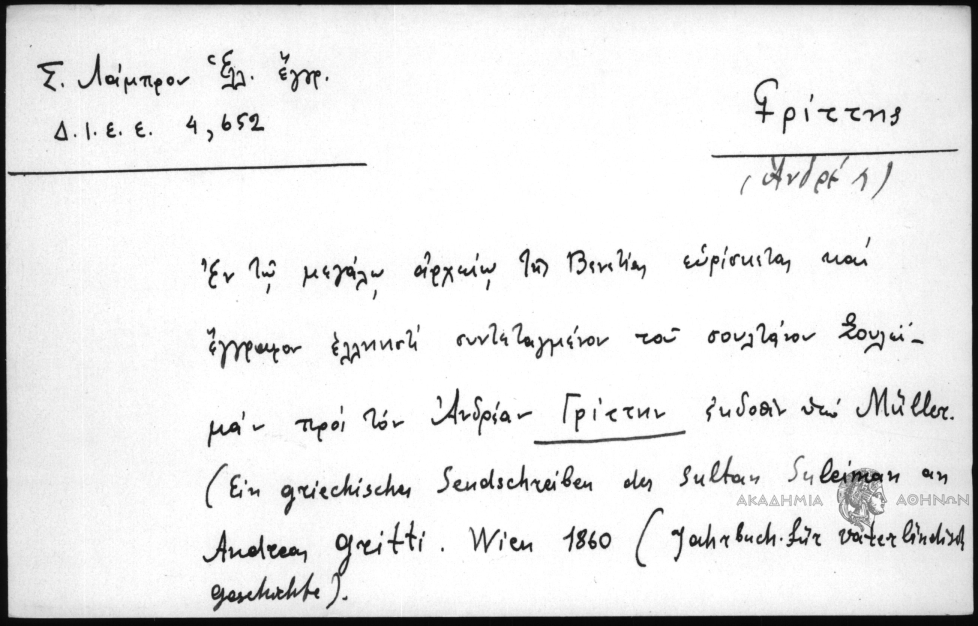 Σ. Λάμπρου Ἑλλ. ἔγγρ.
Δ.Ι.Ε.Ε. 4,652
Γρίττης
(Ἀνδρέας)
Ἐν τῷ μεγάλῳ ἀρχείῳ τῆς Βενετίας εὑρίσκεται καί
ἔγγραφον ἑλληνιστί συντεταγμένον τοῦ σουλτάνου Σουλεϊ-
μάν πρός τόν Ἀνδρέαν Γρίττην ἐκδοθέν ὑπό Müller.
(Ein griechisches Sendschreiben des Sultan Suleiman an
ΑΚΑΔΗΜΙΑ ΑΘΗΝΩΝ
Andreas Gritti. Wien 1860 (Jahrbuch für vaterländisch
geschichte).